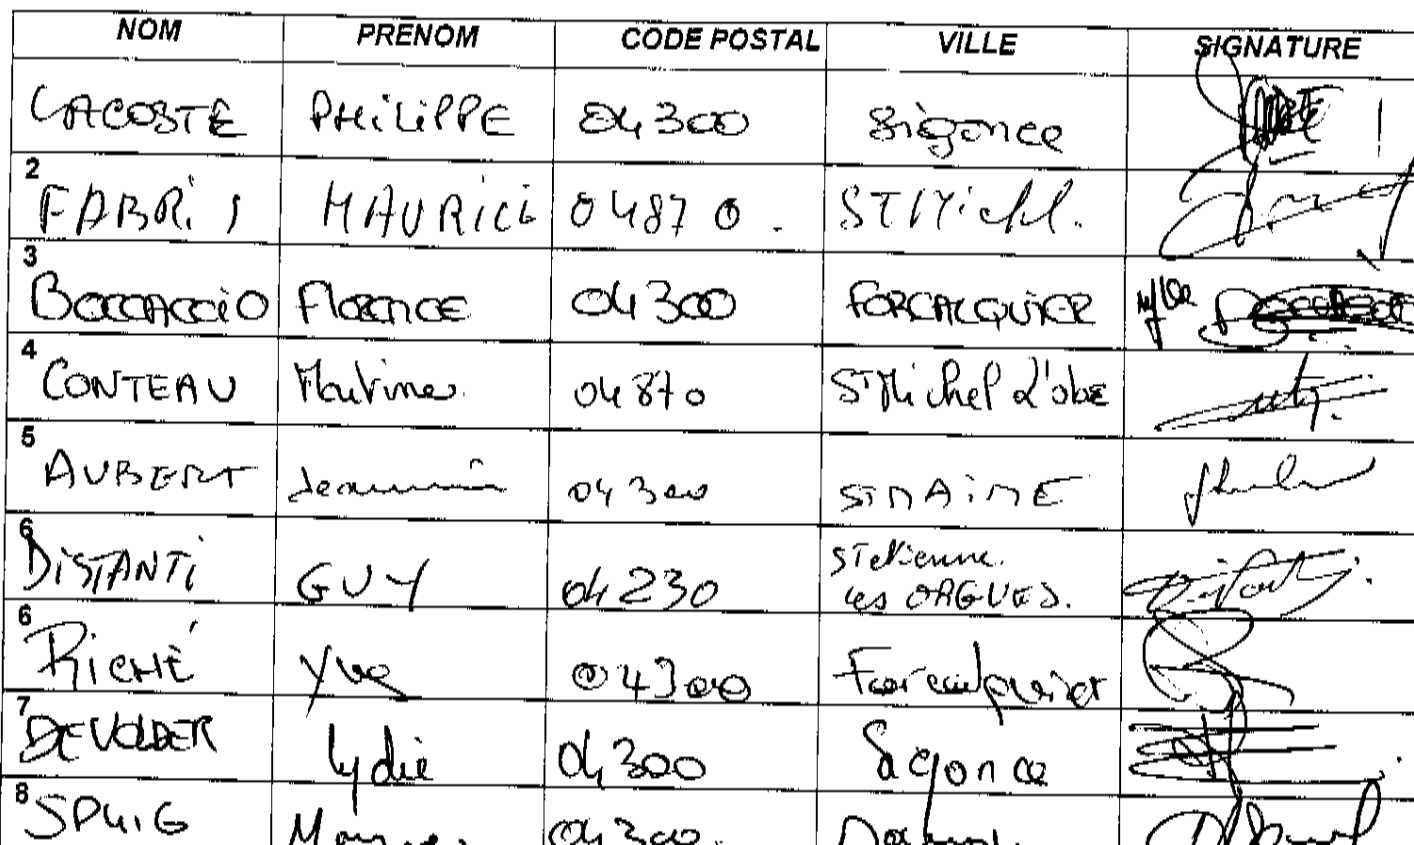 NOM PRENOM CODE POSTAL VILLE SIGNATURE
LACOSTE PHILIPPE 04300 Sigonce
2 FABRIS MAURICE 04870. ST Michel.
3 BOCCACCIO FLORENCE 04300 FORCALQUIER Mlle
4 CONTEAU Martine 04870 ST Michel d'obs
5 AUBERT Jeannin 04300 ST MAIME
6 DISTANTI GUY 04230 ST etienne.
les ORGUES.
6 RICHÉ Yves 04300 Forcalquier
7 DEVOLDER Lydie 04300 Sigonce
8 SPUIG 04300.